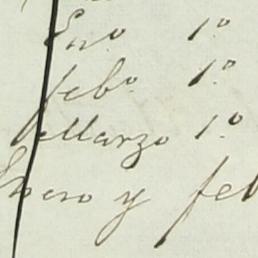 En.o 1.o
feb.o 1.o
Marzo 1.o
Enero y feb